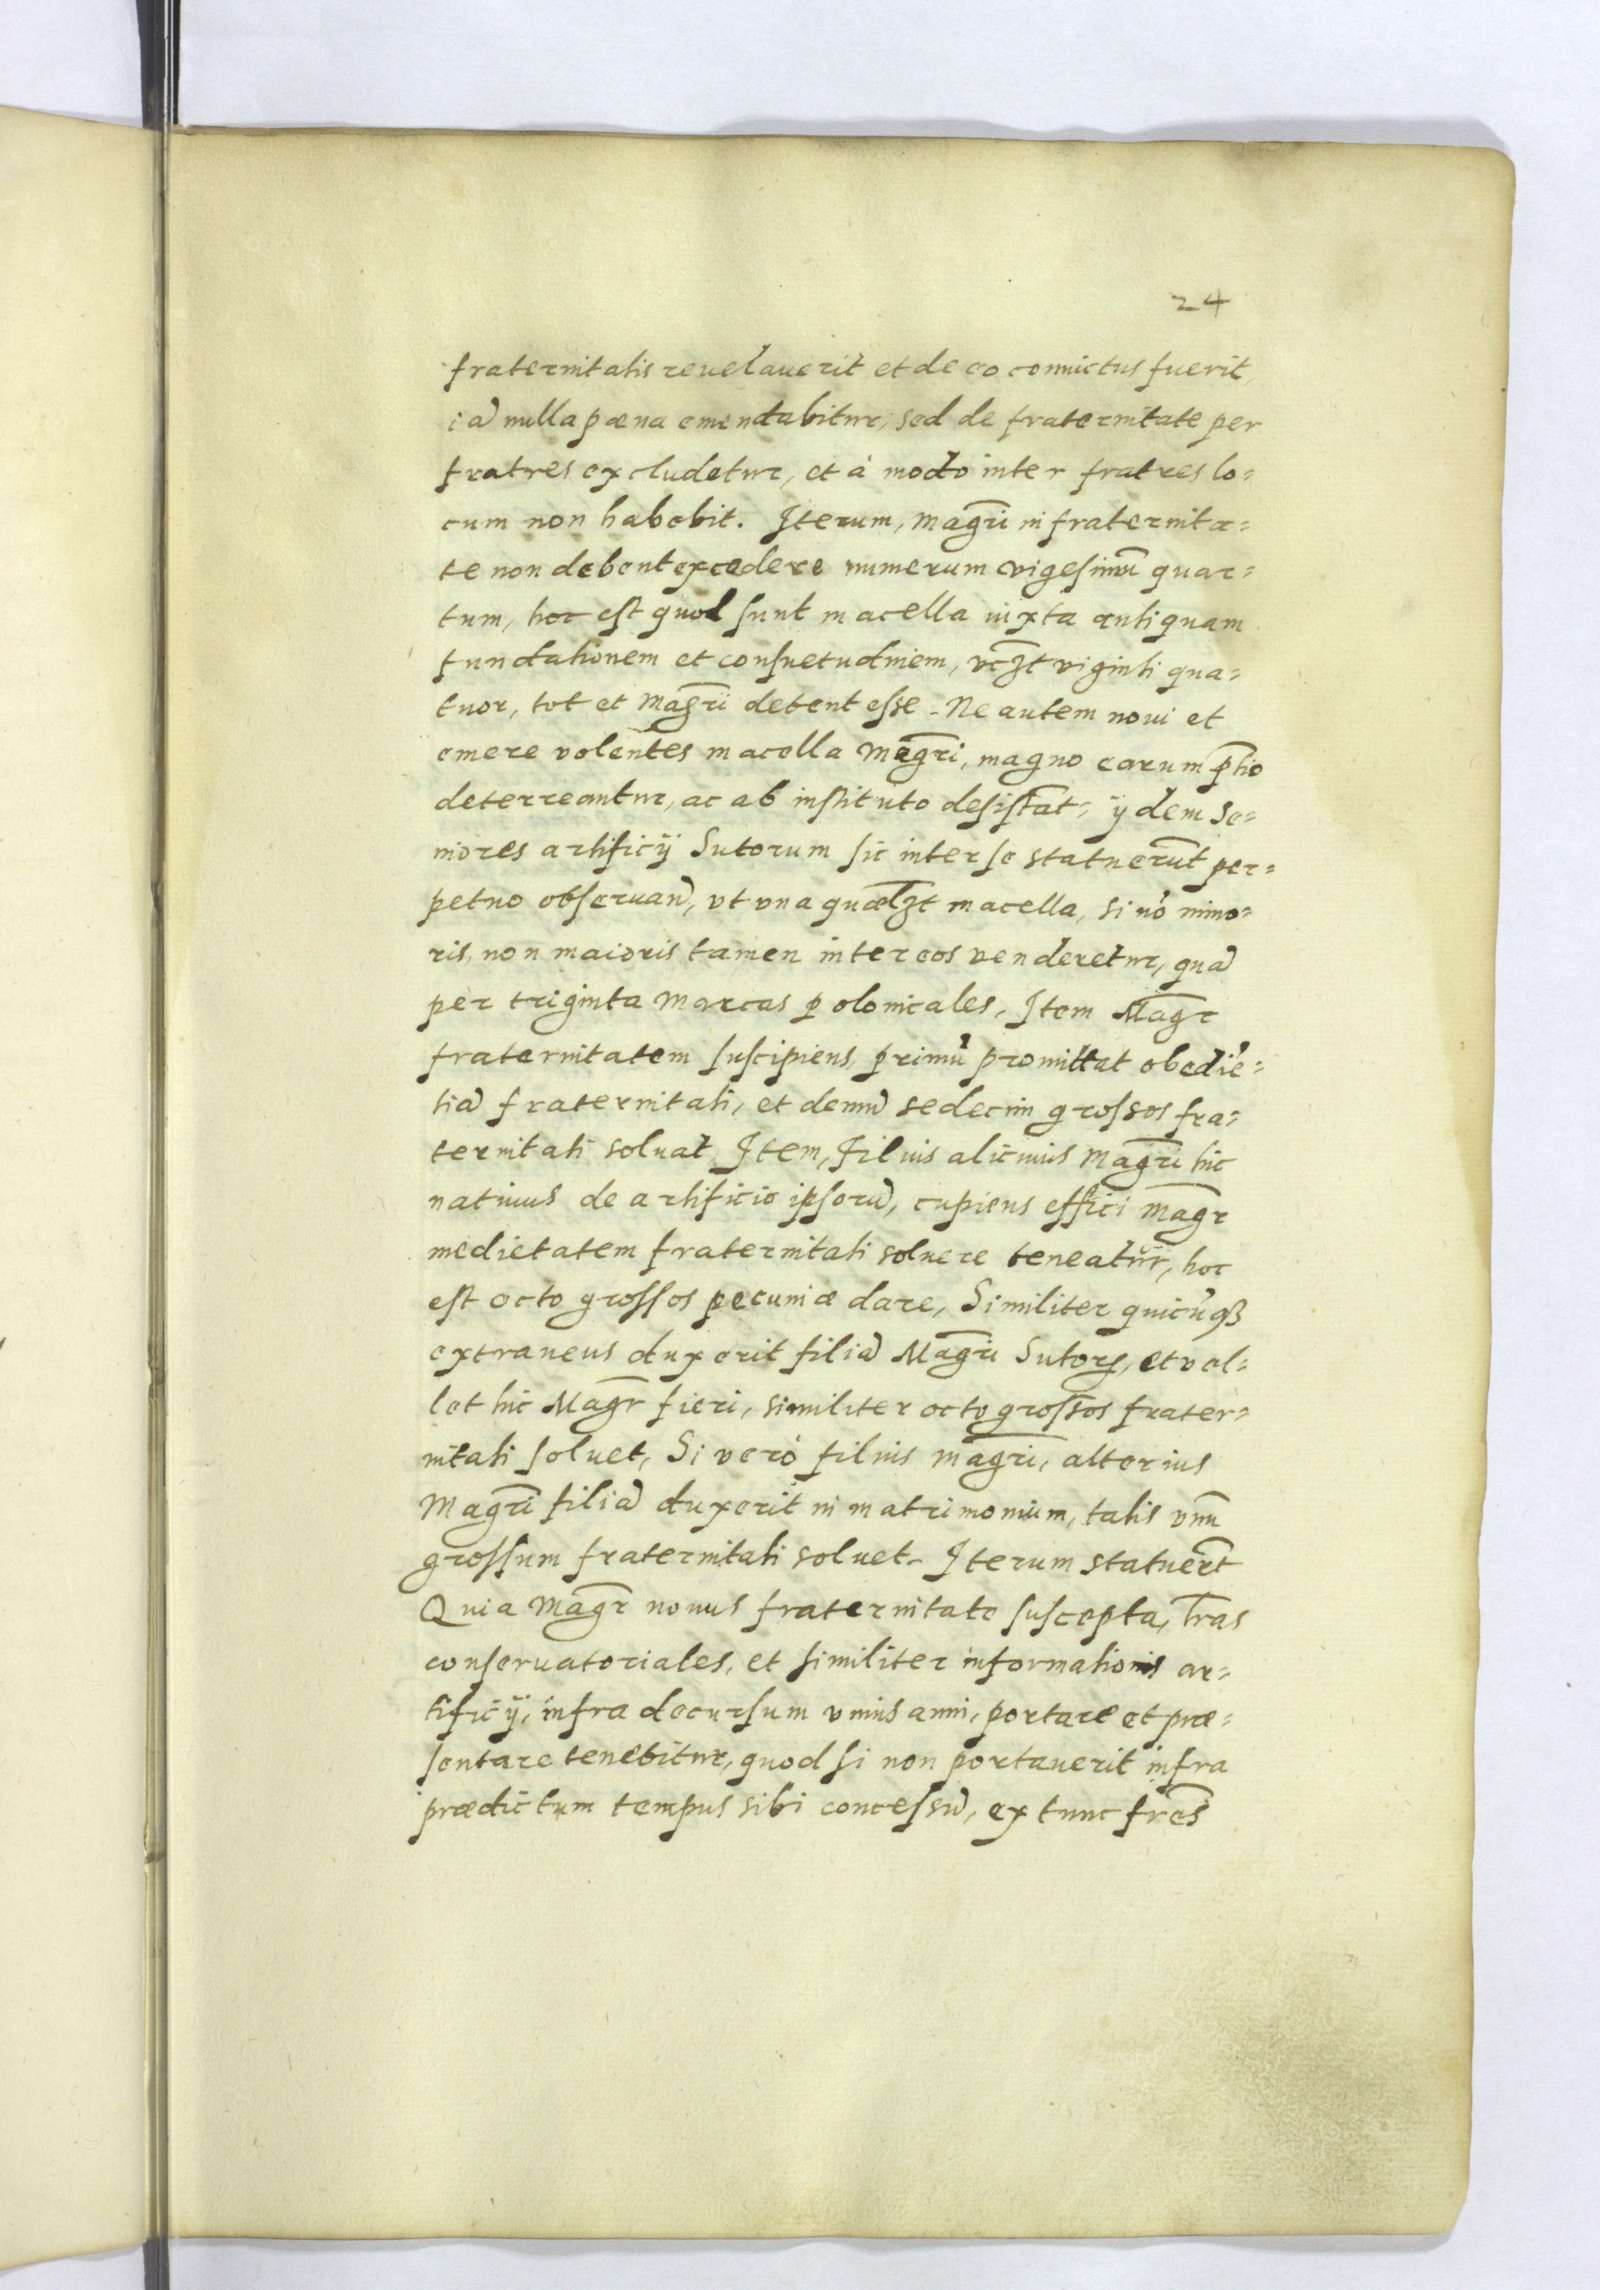 24
fraternitatis reuelauerit et de eo conuictus fuerit,
iã nulla pœna emendabitur, sed de fraternitate per
fratres excludetur, et à modo inter fratres lo=
cum non habebit. Iterum, Magr̃i in fraternita=
te non debent excedere numerum vigesimũ quar=
tum, hoc est quod sunt macella iuxta antiquam
fundationem et consuetudinem, vcꝫt viginti qua=
tuor, tot et Magr̃i debent esse. Ne autem noui et
emere volentes macella Magr̃i, magno earum p̃tio
deterreantur, ac ab instituto desistãt, ijdem Se=
niores artificij Sutorum sic inter se statuerũt per=
petuo obseruand, vt vna quælꝫt macella, si nõ mino=
ris, non maioris tamen inter eos venderetur, quã
per triginta Marcas polonicales. Item Magr̃
fraternitatem suscipiens, primũ promittat obediẽ=
tiã fraternitati, et demũ sedecim grossos fra=
ternitati soluat. Item, Filius alicuius Magr̃i hic
natiuus de artificio ipsorũ, cupiens effici Magr̃
medietatem fraternitati soluere teneatur, hoc
est octo grossos pecuniæ dare, Similiter quicũqꝫ
extraneus duxerit filiã Magr̃i Sutorꝝ, et vel=
let hic Magr̃ fieri, similiter octo grossos frater=
nitati soluet, Si verò filius magr̃i, alterius
Magr̃i filiã duxerit in matrimonium, talis vnũ
grossum fraternitati soluet. Iterum statuer̃t
Quia Magr̃ nouus fraternitate suscepta, Lr̃as
conseruatoriales, et similiter informationis ar=
tificij, infra decursum vnius anni, portare et præ=
sentare tenebitur, quod si non portauerit infra
prædictum tempus sibi concessũ, ex tunc fr̃es